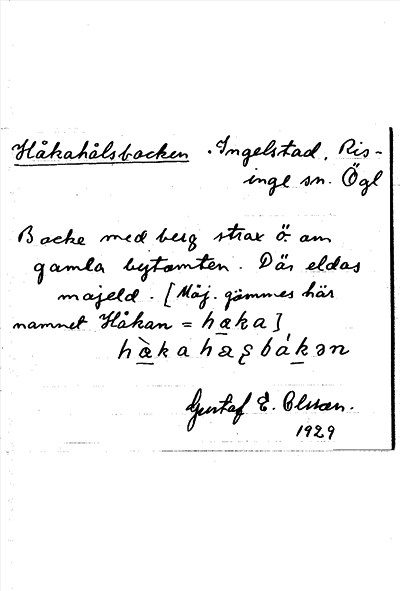 Håkahålsbacken . Ingelstad, Ris-
inge sn. Ögl
Backe med berg strax ö. om
gamla bytomten. Där eldas
majeld. [Måj. gömmes här
namnet Håkan = haka]
Gustaf E. Olsson.
1929